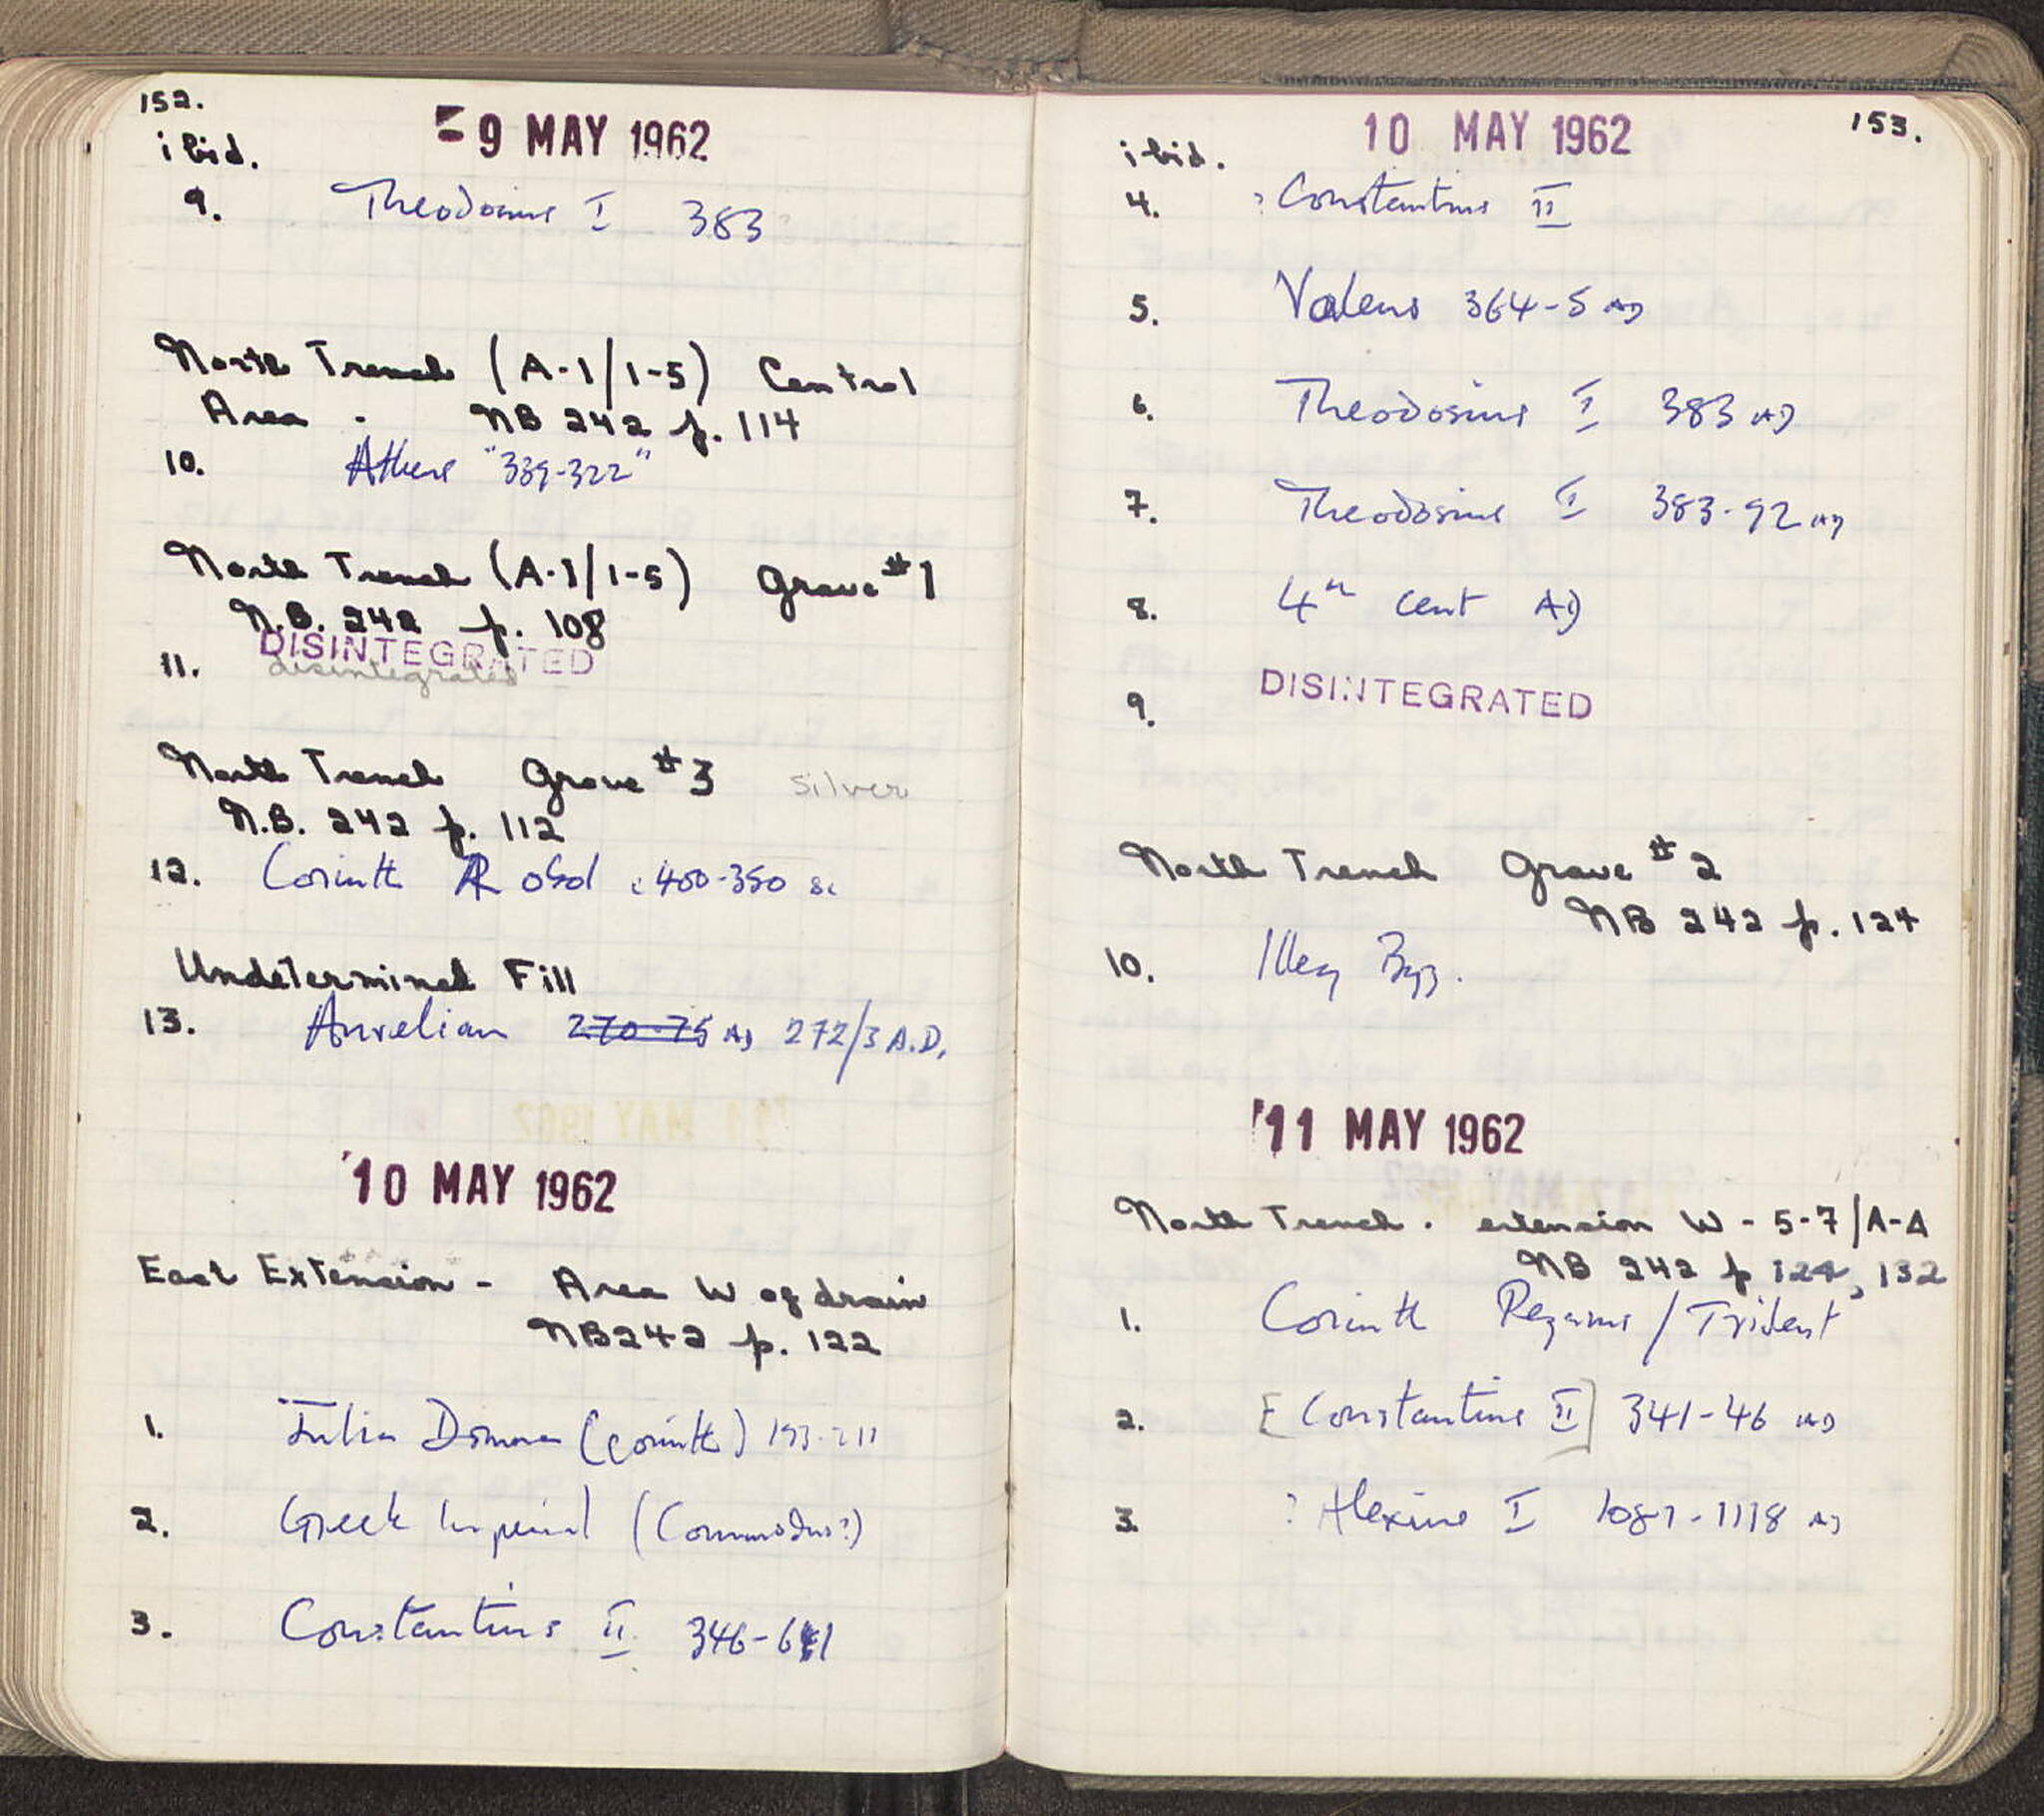 152.
-9 MAY 1962
ibid.
9. Theodosius I 383
North Trench (A-1/1-5) Central
Area. NB 242 p. 114
10. Athens "339-322"
North Trench (A-1/1-5) Grave #1
N.B. 242 p. 108
DISINTEGRATED
11. disintegrated
North Trench Grave #3 silver
N.B. 242 p. 112
12. Corinth AR obol c 400-350 BC
Undetermined Fill
13. Aurelian 270-75 AD 272/3 A.D.
10 MAY 1962
East Extension - Area W of drain
NB242 p. 122
1. Julia Domna (Corinth) 193-211
2. Greek Imperial (Commodus?)
3. Constantius II 346-61
153.
10 MAY 1962
ibid.
4. ?Constantius II
5. Valens 364-5 AD
6. Theodosius I 383 AD
7. Theodosius I 383-92 AD
8. 4th cent AD
9. DISINTEGRATED
North Trench Grave #2
NB 242 p. 124
10. Illeg Byz.
11 MAY 1962
North Trench. extension W - 5-7/A-A
NB 242 p 124, 132
1. Corinth Pegasus / Trident
2. [Constantius II] 341-46 AD
3. ? Alexius I 1081-1118 AD